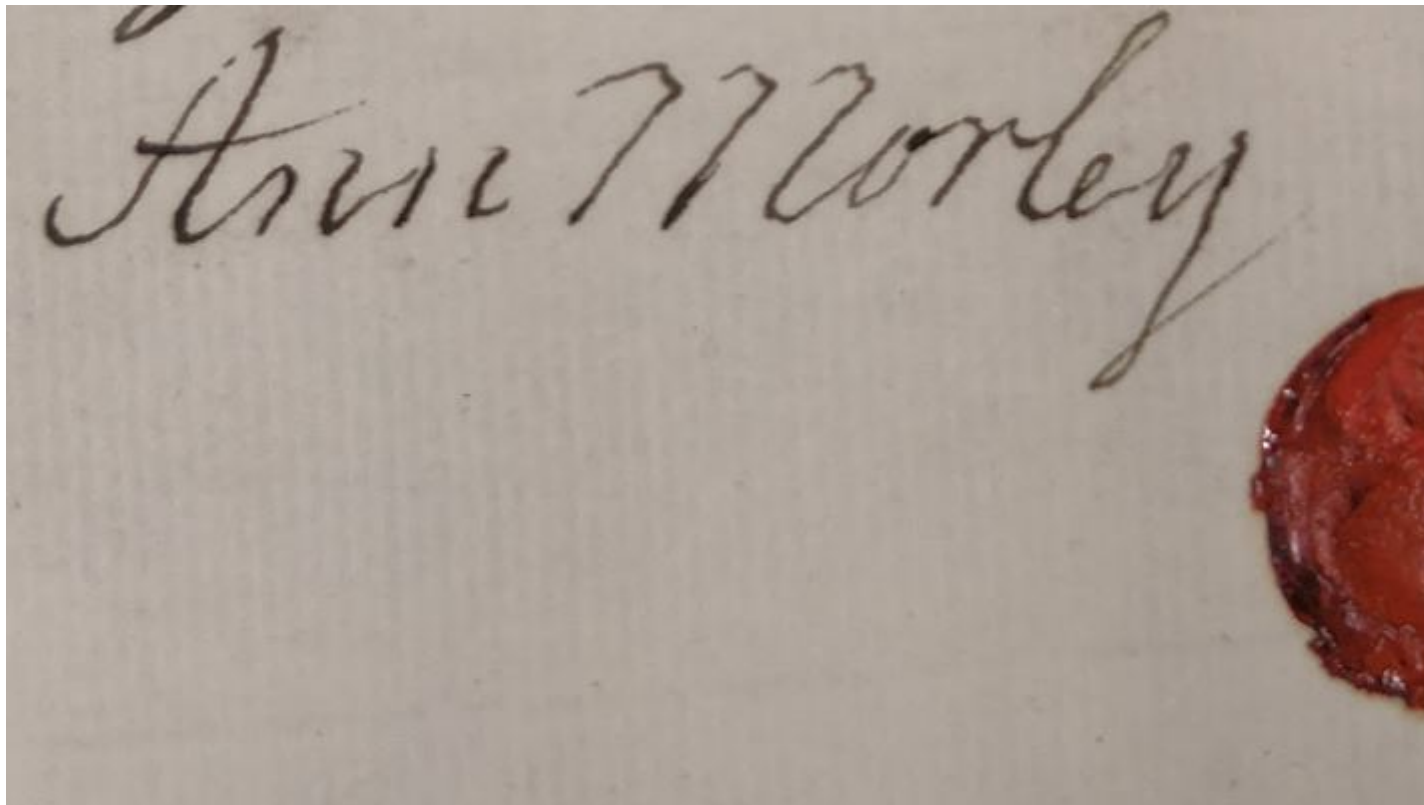 Ann Morley